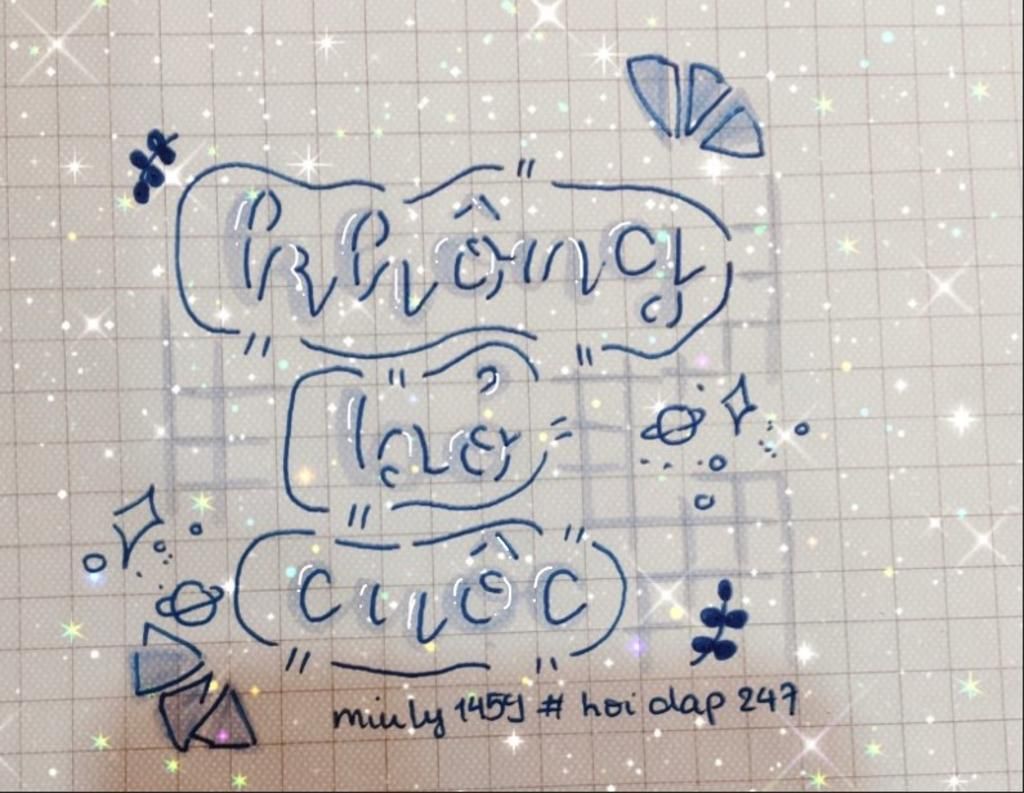 Không
bỏ
cuôc
miuly 1459 # hoidap 247